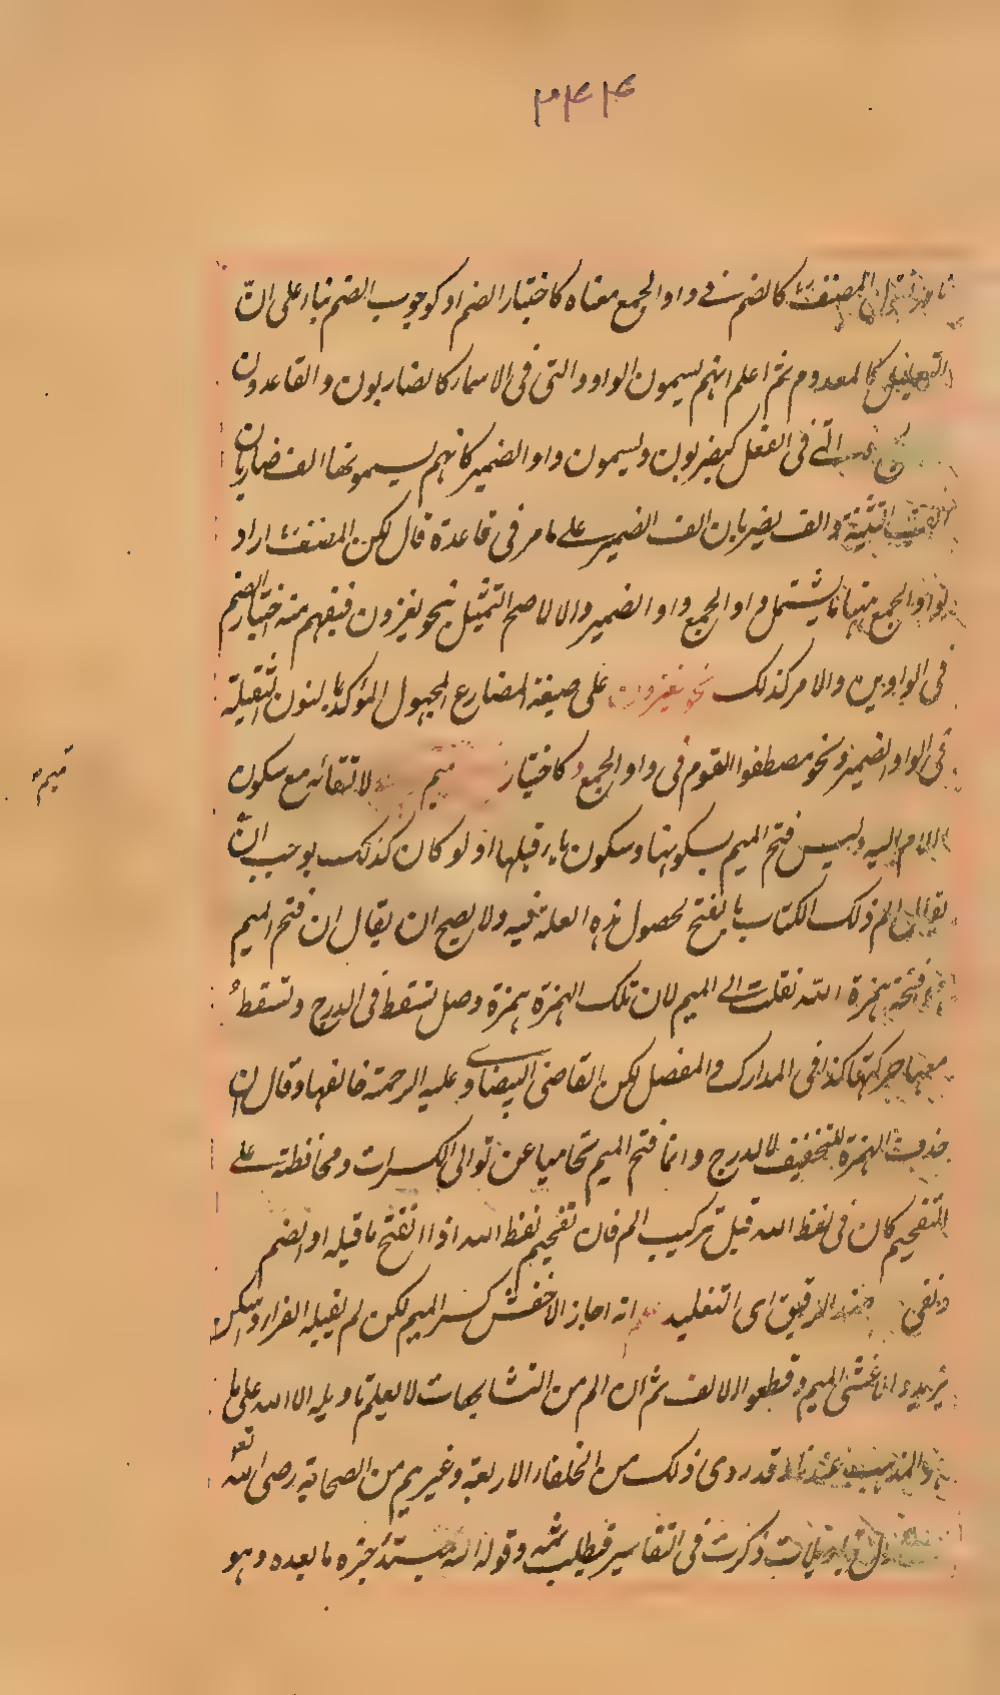 ۳۴۴
المصنف كالضم فى واو الجمع معناه كاختيار الضم او كوجوب الضم بناء على انّ
كالمعدوم ثم اعلم انهم يسمون الواو التى فى الاسماء كالضاربون والقاعدون
التى فى الفعل كيضربون ويسمون واو الضمير كانهم يسمونها الف ضاربان
التثنية والف يضربان الف الضمير على ما مر فى قاعدة قال لكن المصنف اراد
بواو الجمع ما يشتمل واو الجمع واو الضمير والا لا صح التمثيل بنحو يغزون فيفهم منه اختيار الضم
فى الواوين والامر كذلك نحو يغزون على صيغة المضارع المجهول المؤكد بالنون الثقيلة
فى الواو الضمير ونحو مصطفوا القوم فى واو الجمع وكاختيار ميم لالتقائه مع سكون
اللام اليه وليس فتح الميم بسكونها وسكون ياء قبلها اذ لو كان كذلك يوجب ان
يقال الم ذلك الكتاب بالفتح لحصول هذه العلة فيه ولا يصح ان يقال ان فتح الميم
فتحة همزة الله نقلت الى الميم لان تلك الهمزة همزة وصل تسقط فى الدرج وتسقط
معها حركتها كذا فى المدارك والمفصل لكن القاضى البيضاوى عليه الرحمة خالفها وقال ان
حذف الهمزة للتخفيف لا للدرج وانما فتح الميم تحاميا عن توالى الكسرات ومحافظة على
التفخيم كان فى لفظ الله قبل تركيب الم فان تفخيم لفظ الله اذا انفتح ما قبله او انضم
ونفى الرقيق اى التغليد انه اجاز الاخفش كسر الميم لكن لم يقبله الفراء
الميم وقطعوا الالف ثم ان الم من المتشابهات لا يعلم تاويله الا الله على ما
قد روى ذلك من الخلفاء الاربعة وغيرهم من الصحابة رضى الله تع
ذكرت فى التفاسير فيطلب ثمه وقوله الله مبتدأ خبره ما بعده وهو
ميم